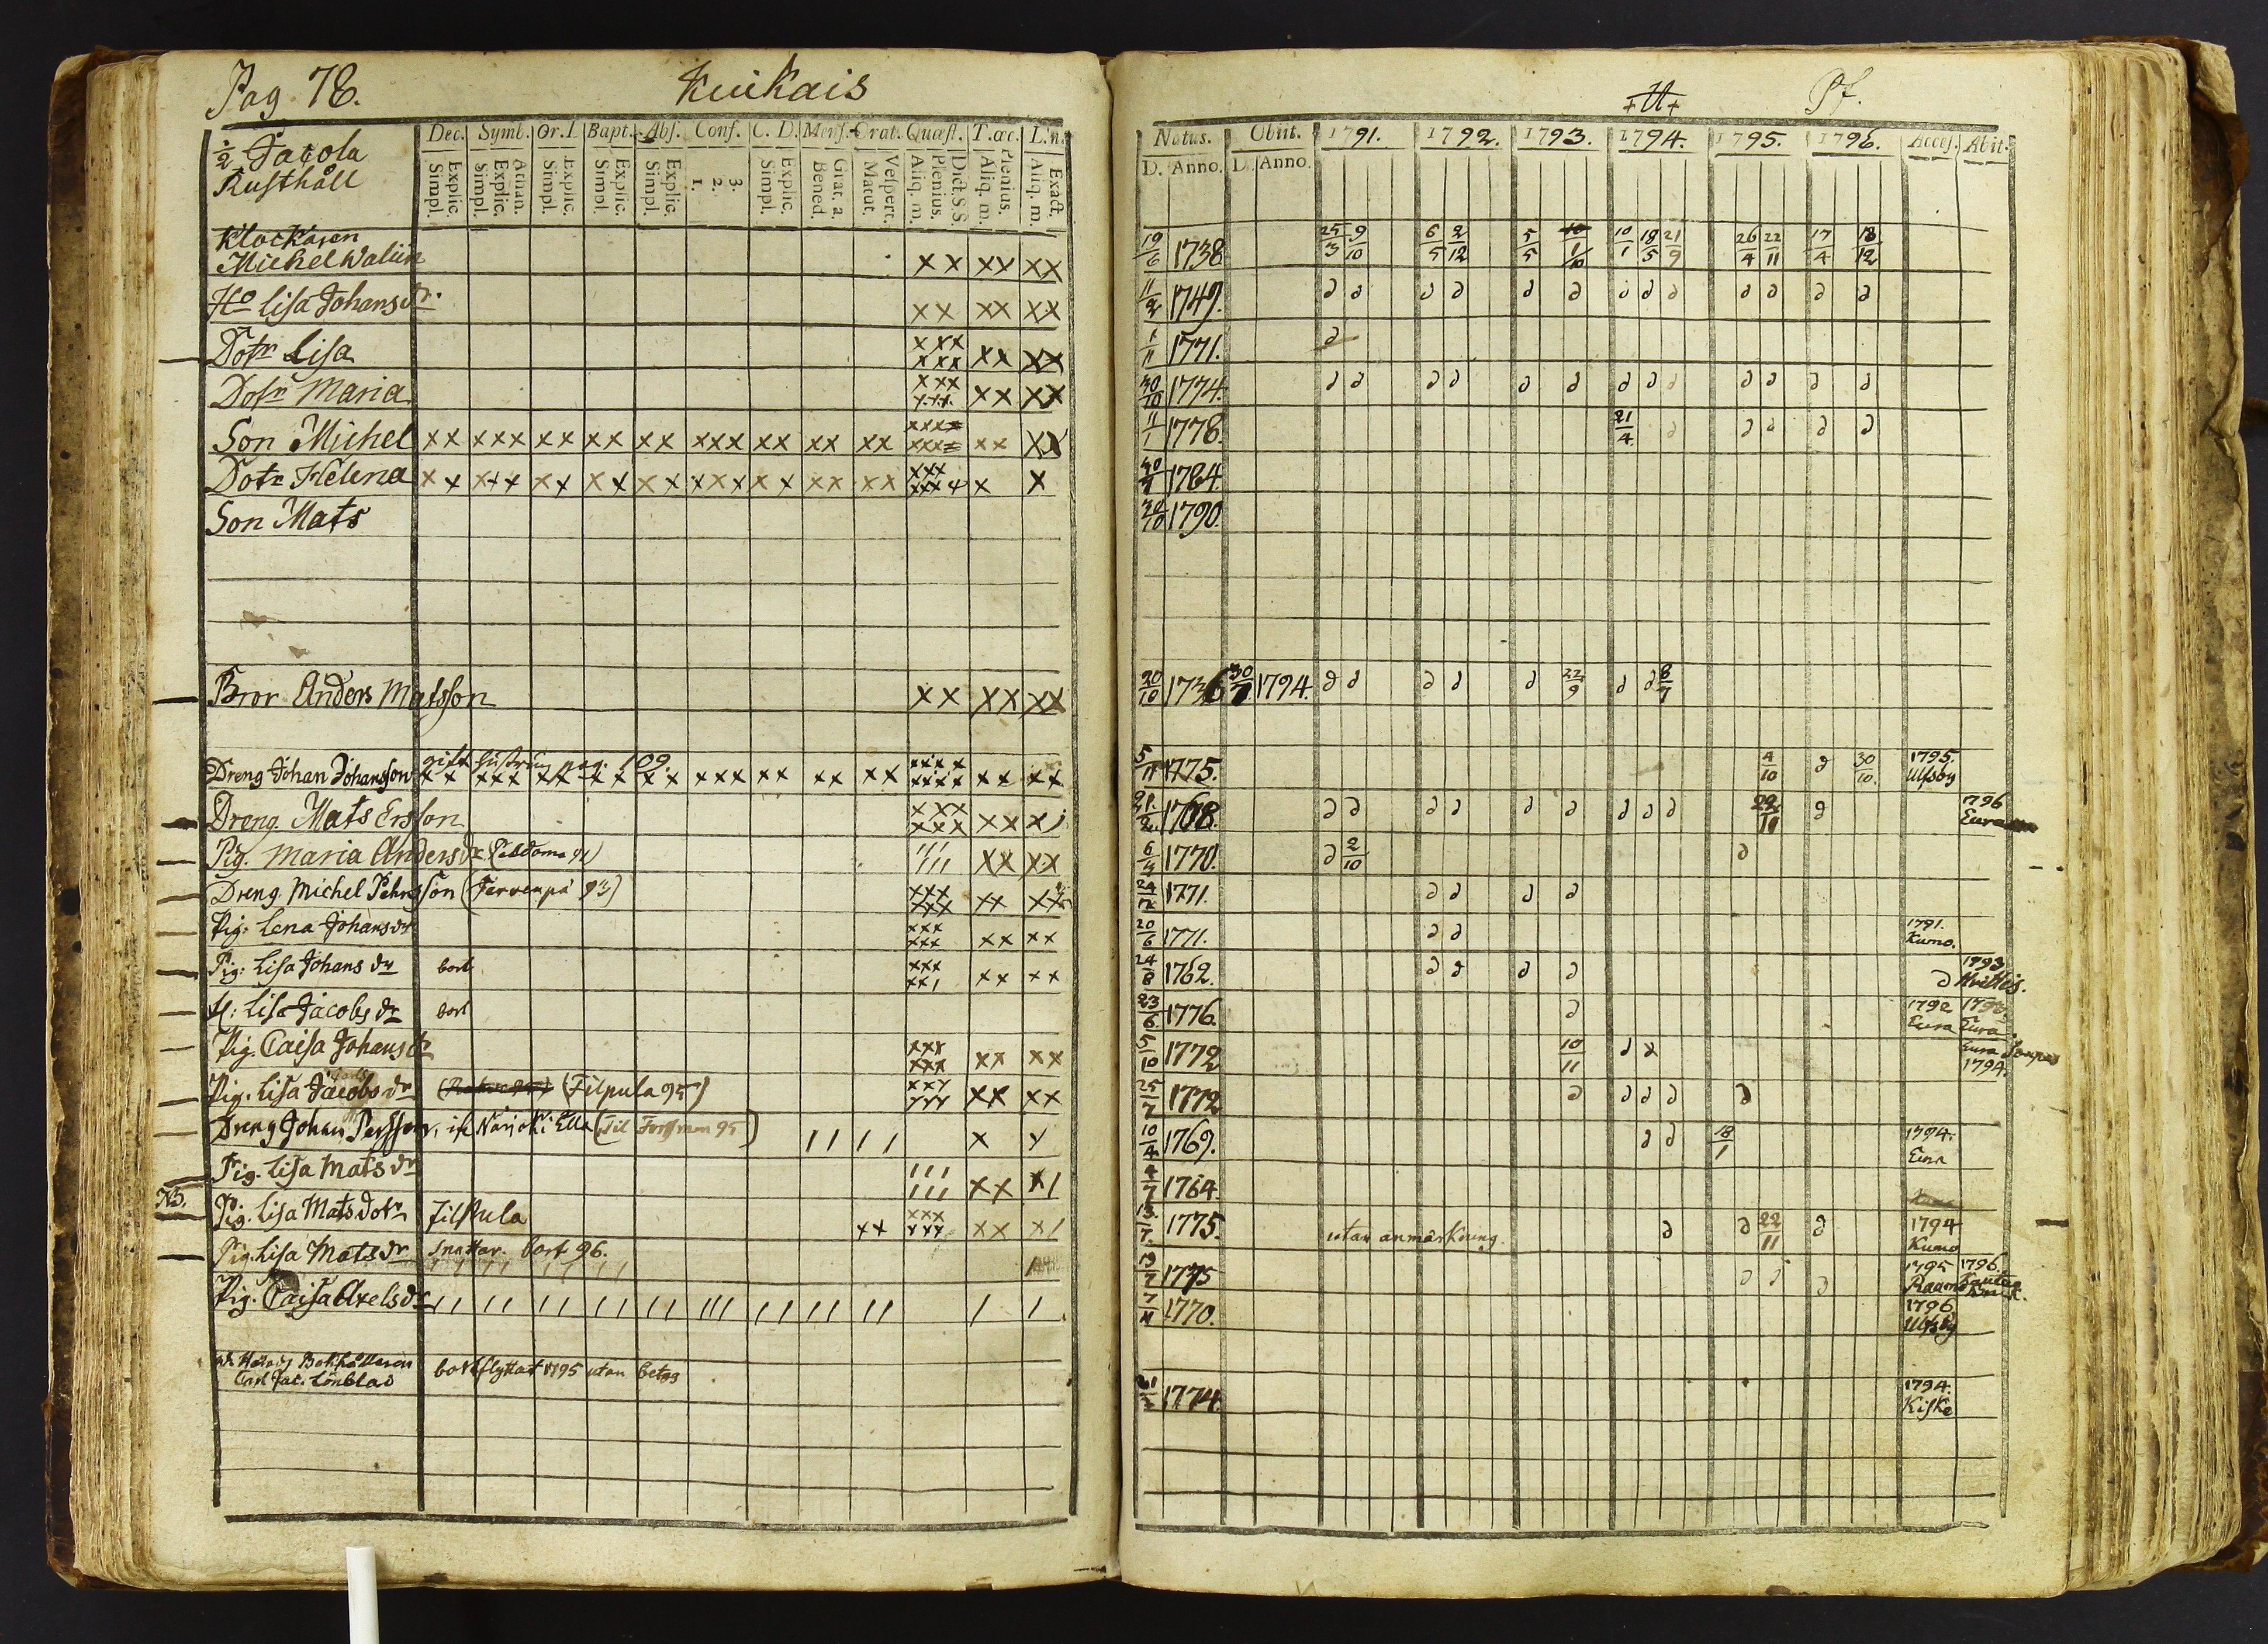 Pag. 78. Kuikais
Dec. Symb. Or. D. Bapt. Abs. Conf. C. D. Mens. Orat. Quæst. T. œc. L. n.
Explic. Simpl. Athan. Explic. Simpl. Explic. Simpl. Explic. Simpl. Explic. Simpl. 3. 2. 1. Explic. Simpl. Grat. a. Bened. Vespert. Matut. Dict. S.S. Plenius. Aliq. m. Plenius. Aliq. m. Exact. Aliq. m.
½ Jacola
Rusthåll
Klockaren
Michel Walin xx xx xx
Ho Lisa Johansdr. xx xx xx
Dotr Lisa xxx xxx xx xx
Dotr Maria xxx xxx xx xx
Son Michel xx xxx xx xx xx xxx xx xx xx xx xx
Dotr Helena xx xxx xx xx xx xxx xx xx xx x x
Son Mats
Bror Anders Matsson xx xx xx
gift pag. 109.
Dreng Johan Johansson xx xxx xx xx xx xxx xx xx xx xxxx xxxx xx xx
Dreng. Mats Ersson xxx xxx xx x/
Pig. Maria Andersdr /// /// xx xx
Dreng. Michel Pehrsson (Jervenpä 93) xxx xxx xx xx
Pig. Lena Johansdr xxx xxx xx xx
Pig. Lisa Johansdr bort xxx xx/ xx xx
Lisa Jacobsdr bort
Pig. Caisa Johansdr xxx xxx xx xx
Pig. Lisa Jacobsdr (Filpula 95) xxx xxx xx xx
Dreng Johan Persson, (Til 95) // // x x
Pig. Lisa Matsdr /// /// xx x/
NB. Pig. Lisa Matsdotr Filpula xx xxx xxx xx x/
Pig. Lisa Matsdr bort 96.
Pig. Caisa Axelsdr // // // // // /// // // // / /
Carl Jac. Lönblad bortflyttat 1795 utan betyg
Pf.
Natus. Obiit. 1791. 1792. 1793. 1794. 1795. 1796. Acces. Abit.
D. Anno. D. Anno.
19/6 1738 25/3 9/10 6/5 2/12 5/5 1/10 10/1 18/5 21/9 26/4 22/11 17/4 18/12
11/2 1749. d d d d d d d d d d d d d
1/11 1771. d
30/10 1774. d d d d d d d d d d d d d
11/1 1778. 21/4 d d d d d
1784
1790.
20/10 1736 1794. d d d d d 22/9 d d 8/7
5/11 1775. 4/10 d 30/10. 1795. Ulfsby
21/2 1768. d d d d d d d d d 22/11 d 1796 Eura
1770. d 2/10 d
24/12 1771. d d d d
20/6 1771. d d 1791. Kumo.
24/8 1762. d d d d d 1793 Hvittis.
23/6 1776. d 1792 Eura Eura
5/10 1772 10/11 d x Eura 1794.
25/7 1772 d d d d d
10/4 1769. d d 18/1 1794. Eura
4/7 1764.
1775. utan anmärkning. d d 22/11 d 1794 Kumo
1775 d d d 1795 1796.
1770. 1796 Ulfsby
1774. 1794. Kiske